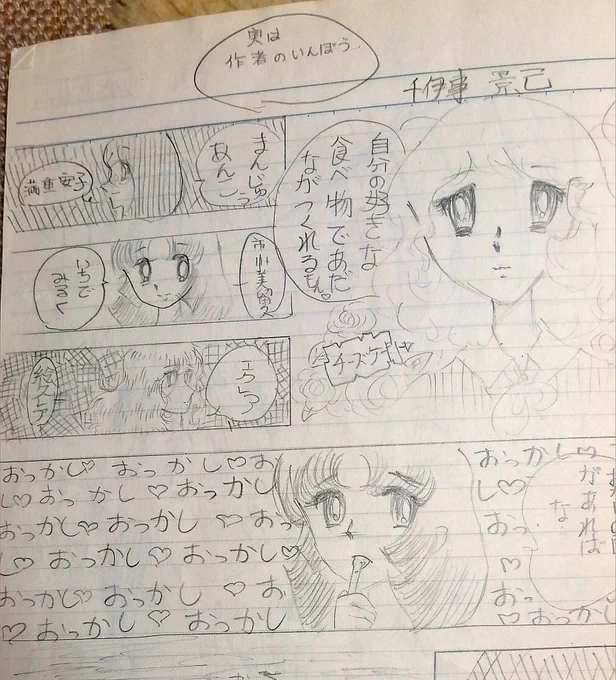 実は
作者のいんぼう
千伊事 景己
自分の好きな
食べ物であだ
ながつくれるもん♡
まんじゅう
あんこっ
満重安子
いちで
みるく
エクレア
チーズケーキ
おっかし♡ おっかし♡お
し♡おっかし♡おっかし
おっかし♡おっかし♡おっ
し♡おっかし♡おっかし♡
おっかし♡おっかし♡お
♡おっかし♡おっかし
おっかし♡
し♡
おっ
♡
おっ
♡おっかし
があれば
な